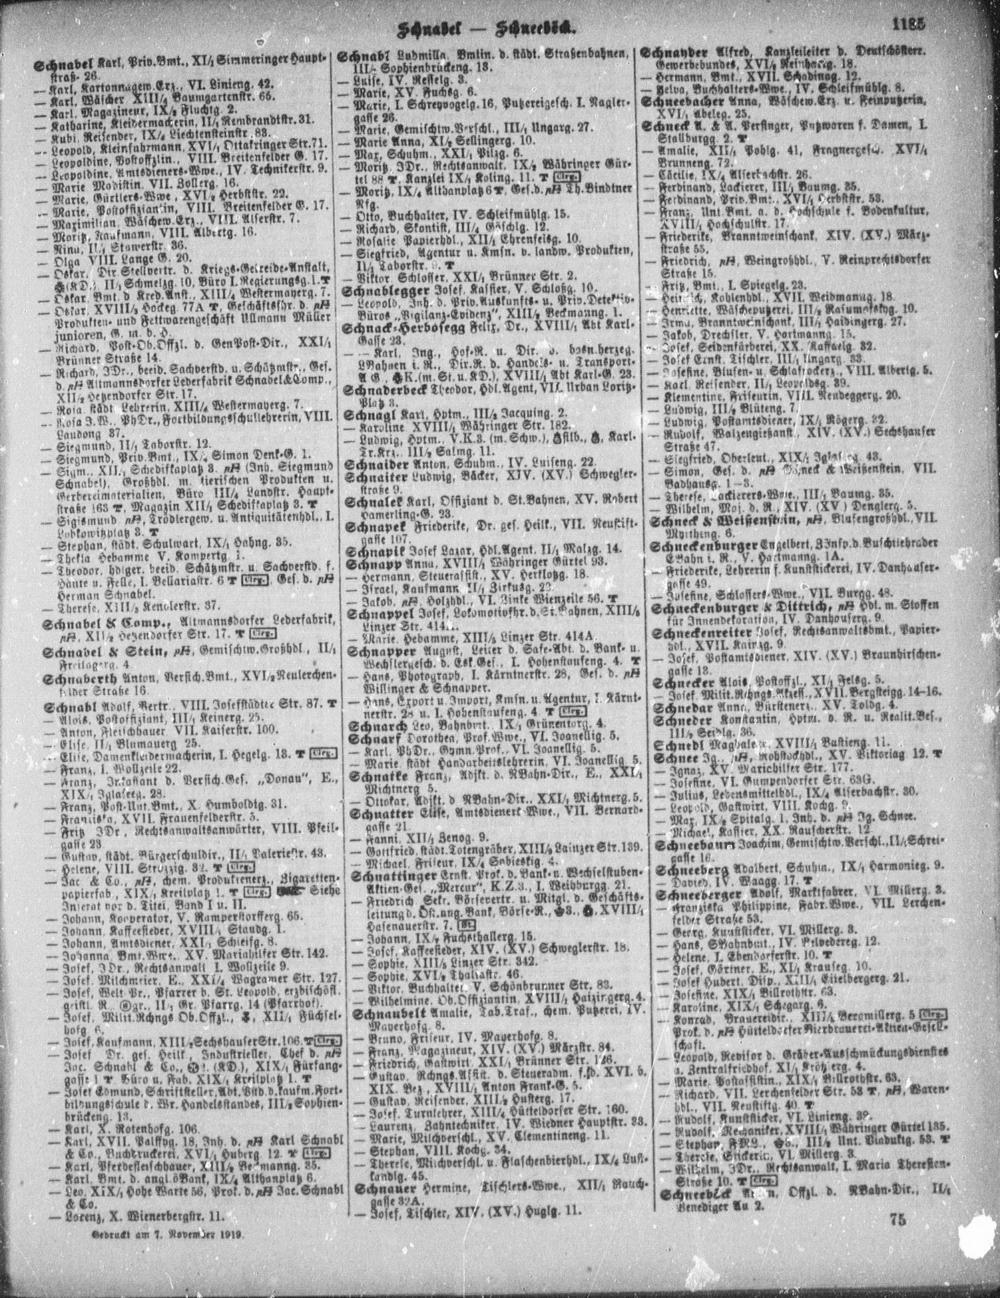 Schnabel — Schneeböck.
1185
Schnabel Karl, Priv.Bmt., XI/1 Simmeringer Haupt-
straß- 26.
— Karl, Kartonnagew.Erz., VI. Linieng. 42.
— Karl, Wäscher XIII/4 Baumgartenstr. 65.
— Karl, Magazineur, IX/4 Fluchtg. 2.
— Katharine, Kleidermacherin, II/4 Rembrandtstr. 31.
— Rubi, Reisender, IX/4 Liechtensteinstr. 83.
— Leopold, Kleinfuhrmann, XVI/1 Ottakringer Str. 71.
— Leopoldine, Postoffztin., VIII. Breitenfelder G. 17.
— Leopoldine, Amtsdieners-Wwe., IV. Technikerstr. 9.
— Marie Modistin, VII. Zollerg. 16.
— Marie, Gürtlers-Wwe., XVI/1 Herbststr. 22.
— Marie, Postoffizian'in, VIII. Breitenfelder G. 17.
— Maximilian Wäschew.Erz., VIII. Alserstr. 7.
— Moritz, Kaufmann, VIII. Albertg. 16.
— Nina, II/1 Stuwerstr. 36.
— Olga VIII. Lange G. 20.
— Oskar, Dir Stellvertr. d. Kriegs-Getreide-Anstalt,
(KD.), II/2 Schmelzg. 10, Büro I. Regierungsg. 1.
— Oskar, Bmt. d. Kred.Anst., XIII/4 Westermayerg. 7.
— Oskar, XVIII/3 Hockeg. 77A, Geschäftsfhr. d.
Produkten- und Fettwarengeschäft Ullmann Müller
junioren, G. m. b. H.
— Richard, Post-Ob.Offzl. d. GenPost-Dir., XXI/1
Brünner Straße 14.
— Richard, JDr., beeid. Sachverstd. u. Schätzmstr., Ges.
d. Altmannsdorfer Lederfabrik Schnabel & Comp.,
XII/2 Hetzendorfer Str. 17.
— Rosa, städt. Lehrerin, XIII/4 Westermayerg. 7.
— Rosa J. W., PhDr., Fortbildungsschullehrerin, VIII.
Laudong. 37.
— Siegmund, II/1 Taborstr. 12.
— Siegmund, Priv.Bmt., IX/4 Simon Denk-G. 1.
— Sigm., XII/1 Schedifkaplatz 3. (Inh. Siegmund
Schnabel), Großhdl. m. tierischen Produkten u.
Gerbereimaterialien, Büro III/4 Landstr. Haupt-
straße 163, Magazin XII/1 Schedifkaplatz 3.
— Sigismund, Trödlergew. u. Antiquitätenhdl., I.
Lobkowitzplatz 3.
— Stephan, städt. Schulwart, IX/4 Hahng. 35.
— Thekla Hebamme V. Kompertg. 1.
— Theodor, hdlger. beeid. Schätzmstr. u. Sachverstd. f.
Häute u. Felle, I. Bellariastr. 6, Ges. d.
Herman Schnabel.
— Therese, XIII/2 Kendlerstr. 37.
Schnabel & Comp., Altmannsdorfer Lederfabrik,
XII/2 Hetzendorfer Str. 17.
Schnabel & Stein, Gemischtw.Großhdl., II/1
Freilagerg. 4.
Schnaberth Anton, Versich.Bmt., XVI/2 Neulerchen-
felder Straße 16.
Schnabl Adolf, Vertr., VIII. Josefstädter Str. 87.
— Alois, Postoffiziant, III/1 Keinerg. 25.
— Anton, Fleischhauer VII. Kaiserstr. 100.
— Elise, II/1 Blumauerg 25.
— Elise, Damenkleidermacherin, I. Hegelg. 13.
— Franz, I. Wollzeile 22.
— Franz, Inkassant d. Versich.Ges. „Donau", E.,
XIX/1 Iglaseeg. 28.
— Franz, Post-Unt.Bmt., X. Humboldtg. 31.
— Franziska, XVII. Frauenfelderstr. 5.
— Fritz JDr., Rechtsanwaltsanwärter, VIII. Pfeil-
gasse 23
— Gustav, städt. Bürgerschuldir., II/1 Valeriestr. 43.
— Helene, VIII. Strozzig. 32.
— Jac & Co., chem. Produktenerz., Zigaretten-
papierfab., XIX/1 Kreilplatz 1. Siehe
Inserat vor d. Titel, Band I u. II.
— Johann, Kooperator, V. Ramperstorfferg. 65.
— Johann, Kaffeesieder, XVIII/1 Staudg. 1.
— Johann, Amtsdiener, XXI/1 Schleifg. 8.
— Johanna, Bmt.Wwe., XV. Mariahilfer Str. 142.
— Josef, JDr., Rechtsanwalt I. Wollzeile 9.
— Josef, Milchmeier, E., XXI/4 Wagramer Str. 127.
— Josef, Welt Pr., Pfarrer b. St. Leopold, erzbischöfl.
geistl. R., II/1 Gr. Pfarrg. 14 (Pfarrhof).
— Josef, Milit.Rchngs Ob.Offzl., XII/1 Füchsel-
hofg. 6.
— Josef, Kaufmann, XIII/2 SechshauserStr.106.
— Josef Dr. ges. Heilk., Industrieller, Chef d.
Jac. Schnabl & Co., (KD.), XIX/1 Fürfang-
gasse 1 Büro u. Fab. XIX/1 Kreilplatz 1.
— Josef Edmund, Schriftsteller, Abt.Vstd. d. kaufm. Fort-
bildungsschule d. Wr. Handelsstandes, III/2 Sophien-
brückeng. 13.
— Karl, X. Rotenhofg. 106.
— Karl, XVII. Palffyg. 18, Inh. d. Karl Schnabl
& Co., Buchdruckerei, XVI/1 Huberg. 12.
— Karl, Pferdefleischhauer, XIII/4 Beckmanng. 35.
— Karl, Bmt. d. anglöBank, IX/4 Althanplatz 6.
— Leo, XIX/1 Hohe Warte 56, Prok. d. Jac. Schnabl
& Co.
— Lorenz, X. Wienerbergstr. 11.
Schnabl Ludmilla, Bmtin. d. städt. Straßenbahnen,
III/2 Sophienbrückeng. 13.
— Luise, IV. Resselg. 3.
— Marie, XV. Fuchsg. 6.
— Marie, I. Schreyvogelg. 16, Putzereigesch. I. Nagler-
gasse 26.
— Marie, Gemischtw.Verschl., III/1 Ungarg. 27.
— Marie Anna, XI/2 Sellingerg. 10.
— Max, Schuhm., XXI/1 Pilzg. 6.
— Moritz, JDr., Rechtsanwalt, IX/2 Währinger Gür-
tel 88, Kanzlei IX/4 Koling. 11.
— Moritz, IX/4 Althanplatz 6, Ges. d. Th. Bindtner
Nfg.
— Otto, Buchhalter, IV. Schleifmühlg. 15.
— Richard, Skontist, III/4 Göschlg. 12.
— Rosalie Papierhdl., XII/2 Ehrenfelsg. 10.
— Siegfried, Agentur u. Kmsn. v. landw. Produkten,
II/1 Taborstr.
— Viktor Schlosser, XXI/1 Brünner Str. 2.
Schnablegger Josef, Kassier, V. Schloßg. 10.
— Leopold, Inh. d. Priv.Auskunfts- u. Priv.Detektiv-
Büros „Vigilanz-Evidenz", XIII/2 Beckmanng. 1.
Schnack-Herbosegg Felix, Dr., XVIII/1 Abt Karl-
Gasse 23.
— Karl, Ing., Hof-R. u. Dir. d. bosn.herzeg.
LBahnen i. R., Dir.R. d. Handels- u. Transport-
A G., K.(m. St. u. KD.), XVIII/1 Abt Karl-G. 23.
Schnaderbeck Theodor, Hdl.Agent, VII. Urban Loritz-
Platz 3.
Schnagl Karl, Hptm., III/2 Jacquing. 2.
— Karoline XVIII/1 Währinger Str. 182.
— Ludwig, Hptm., V.K.3. (m. Schw.), Karl-
Tr.Krz., III/2 Salmg. 11.
Schnaider Anton, Schuhm., IV. Luiseng. 22.
Schnaiter Ludwig, Bäcker, XIV. (XV.) Schwegler-
straße 9.
Schnaler Karl, Offiziant d. St.Bahnen, XV. Robert
Hamerling-G. 23.
Schnapek Friederike, Dr. ges. Heilk., VII. Neustift-
gasse 107.
Schnapik Josef Lazar, Hdl.Agent, II/1 Malzg. 14.
Schnapp Anna, XVIII/1 Währinger Gürtel 93.
— Hermann, Steuerassist., XV. Herklotzg. 18.
— Israel, Kaufmann II/1 Zirkusg. 23.
— Jakob, Holzhdl., VI. Linke Wienzeile 56.
Schnappel Josef, Lokomotivfhr. d. St.Bahnen, XIII/3
Linzer Str. 414.
— Marie, Hebamme, XIII/3 Linzer Str. 414A.
Schnapper August, Leiter d. Safe-Abt. d. Bank- u.
Wechslergesch. d. Esk.Ges., I. Hohenstaufeng. 4.
— Hans, Photograph, I. Kärntnerstr. 28, Ges. d.
Willinger & Schnapper.
— Hans, Export u. Import, Kmsn. u. Agentur, I. Kärnt-
nerstr. 28 u. I. Hohenstaufeng. 4
Schnarch Leo, Bahnbmt., IX/1 Grünentorg. 4.
Schnarf Dorothea, Prof.Wwe., VI. Joanellig. 5.
— Karl, PhDr., Gymn.Prof., VI. Joanellig. 5.
— Marie, städt Handarbeitslehrerin, VI. Joanellig 5.
Schnatke Franz, Adjkt. d. NBahn-Dir., E., XXI/1
Michtnerg 5.
— Ottokar, Adjkt. d NBahn-Dir., XXI/1 Michtnerg. 5.
Schnatter Elise, Amtsdieners Wwe., VII. Bernard-
gasse 21.
— Fanni, XII/1 Zenog. 9.
— Gottfried, städt.Totengräber, XIII/4 Lainzer Str. 139.
— Michael, Friseur, IX/4 Sobieskig. 4.
Schnattinger Ernst, Prok. d. Bank- u. Wechselstuben-
Aktien-Ges. „Mercur", K.Z.3., I. Weihburgg. 21.
— Friedrich, Sekr., Börsevertr. u. Mitgl. d. Geschäfts-
leitung d. Ök.ung. Bank, Börse-R., XVIII/1
Hasenauerstr. 7.
— Johann, IX/4 Fuchsthallerg. 15.
— Josef, Kaffeesieder, XIV. (XV.) Schweglerstr. 18.
— Sophie, XIII/3 Linzer Str. 342.
— Sophie, XVI/2 Thaliastr. 46.
— Viktor, Buchhalter, V. Schönbrunner Str. 83.
— Wilhelmine, Ob.Offiziantin, XVIII/1 Haizingerg. 4.
Schnaubelt Amalie, Tab.Traf., chem. Putzerei, IV.
Mayerhofg. 8.
— Bruno, Friseur, IV. Mayerhofg. 8.
— Franz, Magazineur, XIV. (XV.) Märzstr. 84.
— Friedrich, Gastwirt, XXI/1 Brünner Str. 146.
— Gustav, Rchngs.Assist. d. Steueradm. f. d. XVI. b.
XIX. Bez., XVIII/1 Anton Frank-G. 5.
— Gustav, Reisender, XIII/1 Husterg. 17.
— Josef, Turnlehrer, XIII/4 Hütteldorfer Str. 160.
— Laurenz, Zahntechniker, IV. Wiedner Hauptstr. 33.
— Marie, Milchverschl., XV. Clementineng. 11.
— Stephan, VIII. Kochg. 34.
— Therese, Milchverschl. u. Flaschenbierhdl., IX/4 Lust-
kandlg. 45.
Schnauer Hermine, Tischlers-Wwe., XII/1 Rauch-
gasse 32A.
— Josef, Tischler, XIV. (XV.) Huglg. 11.
Schnauder Alfred, Kanzleileiter d. Deutschösterr.
Gewerbebundes, XVI/2 Reinhartg. 18.
— Hermann, Bmt., XVII. Schadinag. 12.
— Selva, Buchhalters-Wwe., IV. Schleifmühlg. 8.
Schneebacher Anna, Wäschew.Erz. u. Feinputzerin,
XVI/1 Abeleg. 25.
Schneck A. & A. Perfinger, Putzwaren f. Damen, I.
Stallburgg. 2.
— Amalie, XII/1 Pohlg. 41, Fragnergesch. XVI/1
Brunneng. 72.
— Cäcilie, IX/4 Alserbachstr. 26.
— Ferdinand, Lackierer, III/1 Baumg. 35.
— Ferdinand, Priv.Bmt., XVI/1 Herbststr. 53.
— Franz, Unt.Bmt. a. d. Hochschule f. Bodenkultur,
XVIII/1 Hochschulstr. 17.
— Friederike, Branntweinschank, XIV. (XV.) März-
straße 55.
— Friedrich, Weingroßhdl., V. Reinprechtsdorfer
Straße 15.
— Fritz, Bmt., I. Spiegelg. 23.
— Heinrich, Kohlenhdl., XVII. Weidmanng. 18.
— Henriette, Wäscheputzerei, III/2 Rasumofskyg. 10.
— Irma, Branntweinschank, III/1 Haidingerg. 27.
— Jakob, Drechsler, V. Hartmanng. 15.
— Josef, Seidenfärberei, XX. Raffaelg. 32.
— Josef Ernst, Tischler, III/1 Ungarg. 33.
— Josefine, Blusen- u. Schlafrockerz., VIII. Albertg. 5.
— Karl, Reisender, II/1 Leopoldsg. 39.
— Klementine, Friseurin, VIII. Neudeggerg. 20.
— Ludwig, III/2 Blüteng. 7.
— Ludwig, Postamtsdiener, IX/4 Rögerg. 32.
— Rudolf, Walzengießanst., XIV. (XV.) Sechshauser
Straße 47.
— Siegfried, Oberleut., XIX/1 Iglaseeg. 43.
— Simon, Ges. d. Schneck & Weißenstein, VII.
Badhausg. 1—3.
— Therese, Lackierers-Wwe., III/1 Baumg. 35.
— Wilhelm, Moj. d. R., XIV. (XV.) Denglerg. 5.
Schneck & Weißenstein, Blusengroßhdl., VII.
Mytheng. 6.
Schneckenburger Engelbert, ZInsp. d. Buschtiehrader
EBahn i. R., V. Hartmanng. 1A.
— Friederike, Lehrerin f. Kunststickerei, IV. Danhauser-
gasse 49.
— Josefine, Schlossers-Wwe., VII. Burgg. 48.
Schneckenburger & Dittrich, Hdl. m. Stoffen
für Innendekoration, IV. Danhauserg. 9.
Schneckenreiter Josef, Rechtsanwaltsbmt., Papier-
hdl., XVII. Kainzg. 9.
— Josef, Postamtsdiener, XIV. (XV.) Braunhirschen-
gasse 13.
Schnecker Alois, Postoffzl., XI/1 Felsg. 5.
— Josef, Milit.Rchngs.Akzess., XVII. Bergsteigg. 14–16.
Schnedar Anna, Bürstenerz., XV. Toldg. 4.
Schneder Konstantin, Hptm. d. R. u. Realit.Bes.,
III/4 Seidlg. 36.
Schnedl Magdalena, XVIII/1 Bastieng. 11.
Schnee Ig., Rohstockhdl., XV. Viktoriag 12.
— Ignaz, XV. Mariahilfer Str. 177.
— Josefine, VI. Gumpendorfer Str. 63G.
— Julius, Lebensmittelhdl., IX/4 Alserbachstr. 30.
— Leopold, Gastwirt, VIII. Kochg. 9.
— Max, IX/4 Spitalg. 1, Inh. d. Ig. Schnee.
— Michael, Kassier, XX. Rauscherstr. 12
Schneebaum Joachim, Gemischtw.Verschl., II/1 Schrei-
gasse 16.
Schneeberg Adalbert, Schuhm., IX/4 Harmonieg. 9.
— David, IV. Waagg. 17.
Schneeberger Adolf, Marktfahrer, VI. Millerg. 3.
— Franziska Philippine, Fabr.Wwe., VII. Lerchen-
felder Straße 53.
— Georg, Kunststicker, VI. Millerg. 3.
— Hans, SBahnbmt., IV. Belvedereg. 12.
— Helene, I. Ebendorferstr. 10.
— Josef, Gärtner, E., XI/1 Krauseg. 10.
— Josef Hubert, Disp., XIII/1 Eitelbergerg. 21.
— Josefine, XIX/1 Billrothstr. 63.
— Karoline, XIX/1 Scheparg. 6.
— Konrad, Brauereidir., XIII/4 Bergmillerg. 5
Prok. d. Hütteldorfer Bierbrauerei-Aktien-Gesell-
schaft.
— Leopold, Revisor d. Gräber-Ausschmückungsdienstes
a. Zentralfriedhof, XI/1 Kröpferg. 4.
— Marie, Postassistin., XIX/1 Billrothstr. 63.
— Richard, VII. Lerchenfelder Str. 53, Waren-
hdl., VII. Neustiftg. 40.
— Rudolf, Kunststicker, VI. Linieng. 3?.
— Rudolf, Mechaniker, XVIII/1 Währinger Gürtel 135.
— Stephan, FML., III/2 Unt. Viaduktg. 53.
— Therese, Stickerei, VI. Millerg. 3.
— Wilhelm, JDr., Rechtsanwalt, I. Maria Theresien-
Straße 10.
Schneeböck Anton, Offzl. d. NBahn-Dir., II/1
Venediger Au 2.
Gedruckt am 7. November 1919.
75